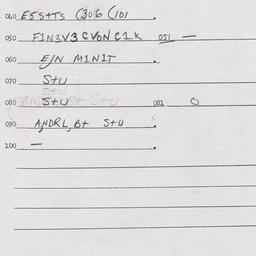 040 E5S+TS (306 (101
050 F1N3V3 CVON C1K 051 —
060 E/N M1N1T
070 S+U
080 S+U 081 O
090 ANDRL, B+ S+U
100 —